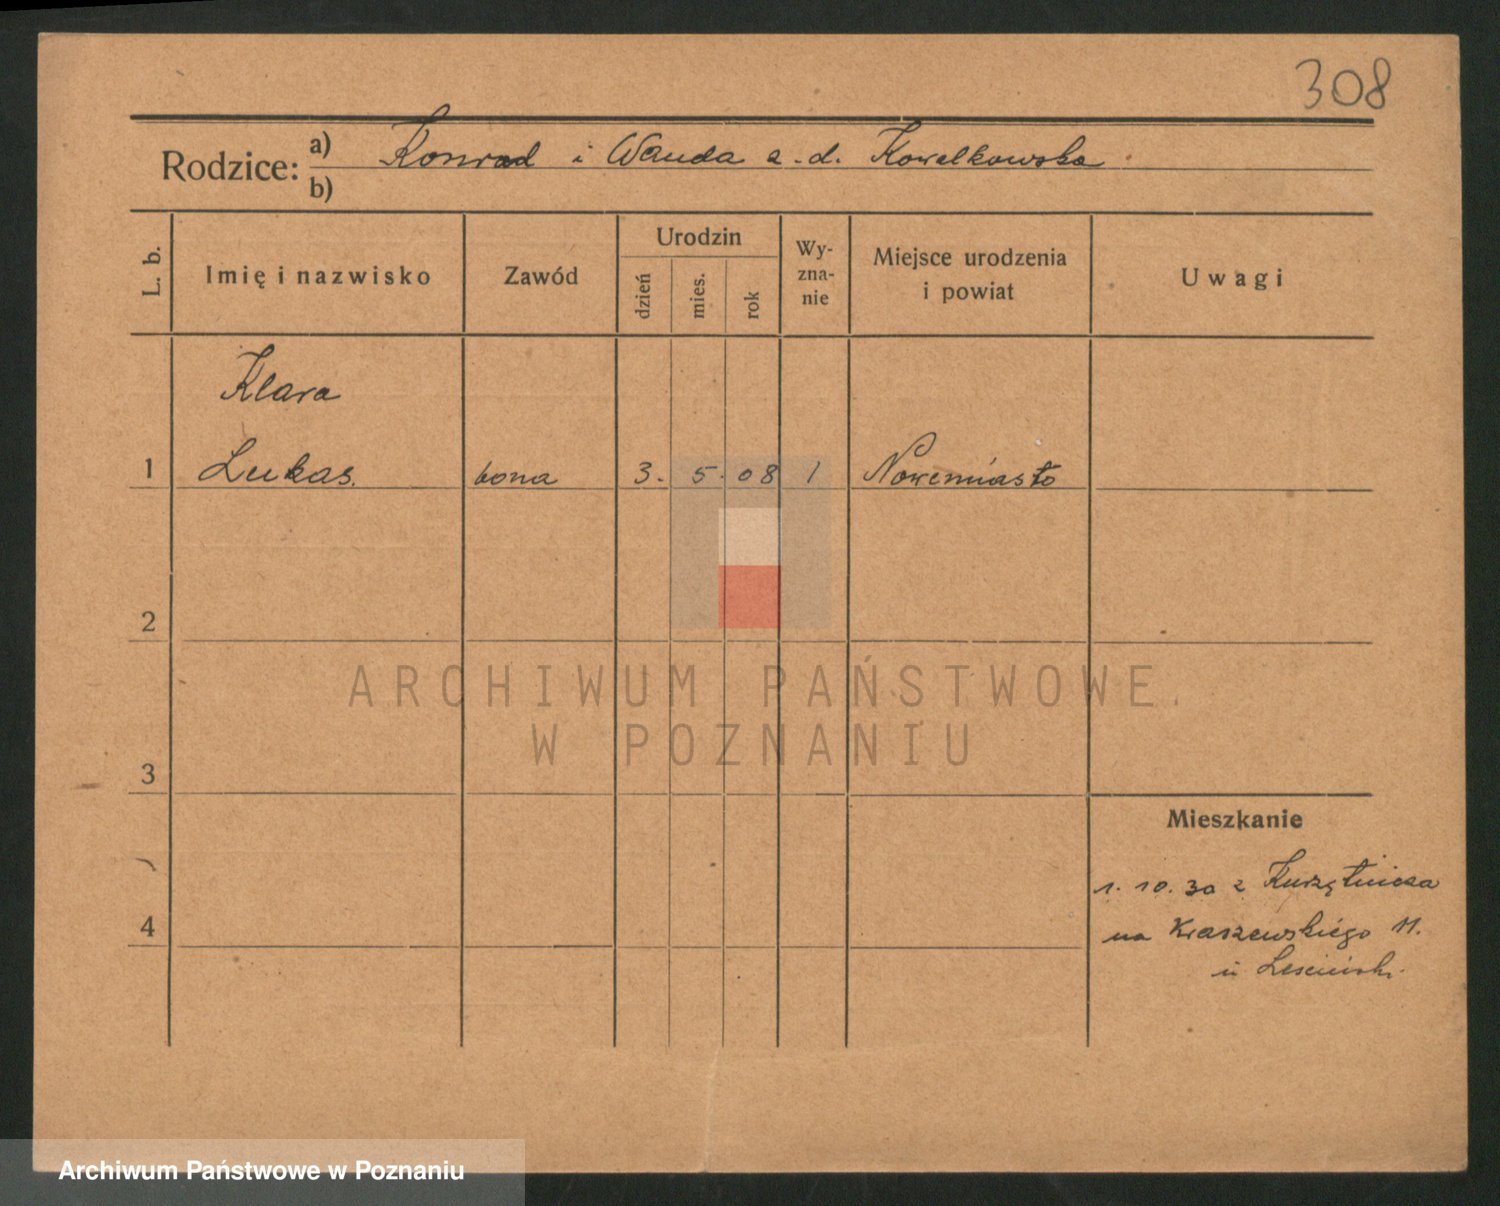 308
Rodzice: a) Konrad i Wanda z-d. Kowalkowska
b)
L. b. Imię i nazwisko Zawód Urodzin dzień mies. rok Wyznanie Miejsce urodzenia i powiat Uwagi
Klara
1 Lukas. bona 3. 5. 08 1 Nowemiasto
2
ARCHIWUM PAŃSTWOWE
W POZNANIU
3
Mieszkanie
1. 10. 30 z Kurzętnicza
4
na Kraszewskiego 11.
u Lesiński.
Archiwum Państwowe w Poznaniu